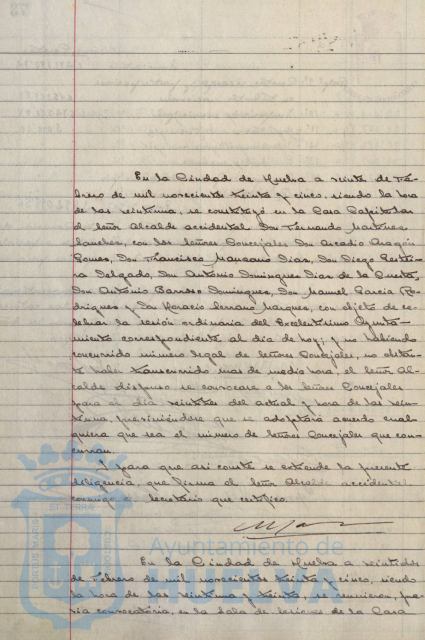 En la Ciudad de Huelva a veinte de Fe-
brero de mil novecientos treinta y cinco, siendo la hora
de las veintiuna, se constituyó en la Casa Capitular
el señor Alcalde accidental Don Fernando Martinez
Sanchez, con los señores Concejales Don Arcadio Aragón
Gomez, Don Francisco Manzano Diaz, Don Diego
Delgado, Don Antonio Dominguez Diaz de la Cuesta,
Don Antonio Barroso Dominguez, Don Manuel Garcia Ro-
driguez y Don Horacio Serrano Marquez, con objeto de ce-
lebrar la sesión ordinaria del Excelentísimo Ayunta-
miento correspondiente al día de hoy; y no habiendo
concurrido número legal de señores Concejales, no obstan-
te haber transcurrido mas de media hora, el señor Al-
calde dispuso se convocara a los señores Concejales
para el día veintidos del actual y hora de las vein-
tiuna, previniéndose que se adoptará acuerdo cual-
quiera que sea el número de señores Concejales que con-
curran.
Y para que así conste se extiende la presente
diligencia, que firma el señor Alcalde accidental
conmigo el Secretario que certifico.
En la Ciudad de Huelva a veintidos
de Febrero de mil novecientos treinta y cinco, siendo
la hora de las veintiuna y treinta, se reunieron, pre-
via convocatoria, en la Sala de Sesiones de la Casa
Ayuntamiento de
HUELVA